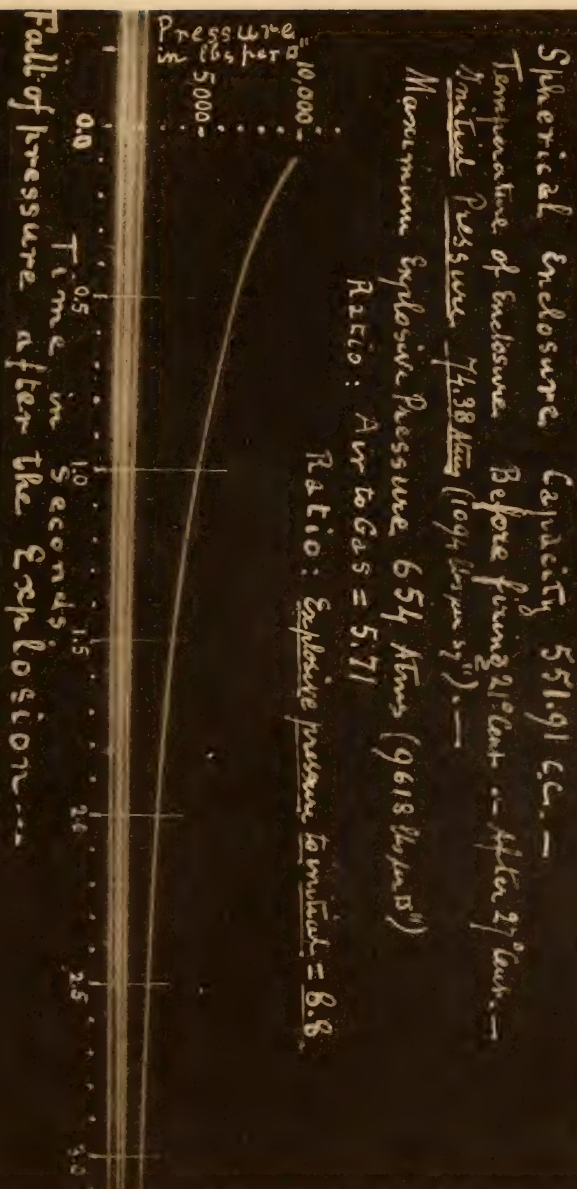 Spherical Enclosure, Capacity 551.91 c.c. —
Temperature of Enclosure Before firing 21° Cent — After 27° Cent. —
Initial Pressure 74.38 Atms (1094 lbs per sq"). —
Maximum Explosive Pressure 654 Atms (9618 lbs per □")
Ratio: Air to Gas = 5.71
Ratio: Explosive pressure to initial = 8.8
Pressure
in lbs per □"
10,000
5,000
0.0 0.5 1.0 1.5 2.0 2.5 3.0
Time in Seconds
Fall of pressure after the Explosion...